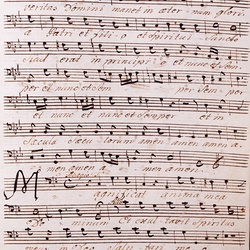 veritas Domini manet in aeter num gloria
a Patri et filio et spiritui Sancto
sicut erat in principio et nunc et sem
per et nunc et sem per et in
et nunc et nunc et semper et in
saecula saeculorum amen amen amen a
men amen a men amen
Magnificat anima mea
Dominum Et exultavit spiritus
meus in Deo salutari meo